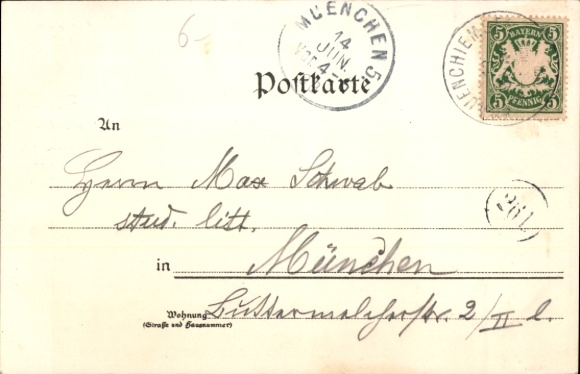 6-
MUENCHEN 5
14
JUN.
VOR 4-
BAYERN
5 5
5 5
PFENNIG
Postkarte
An
Herrn Max Schwab
stud. litt.
261
in München
Wohnung
(Straße und Hausnummer)
2/II l.